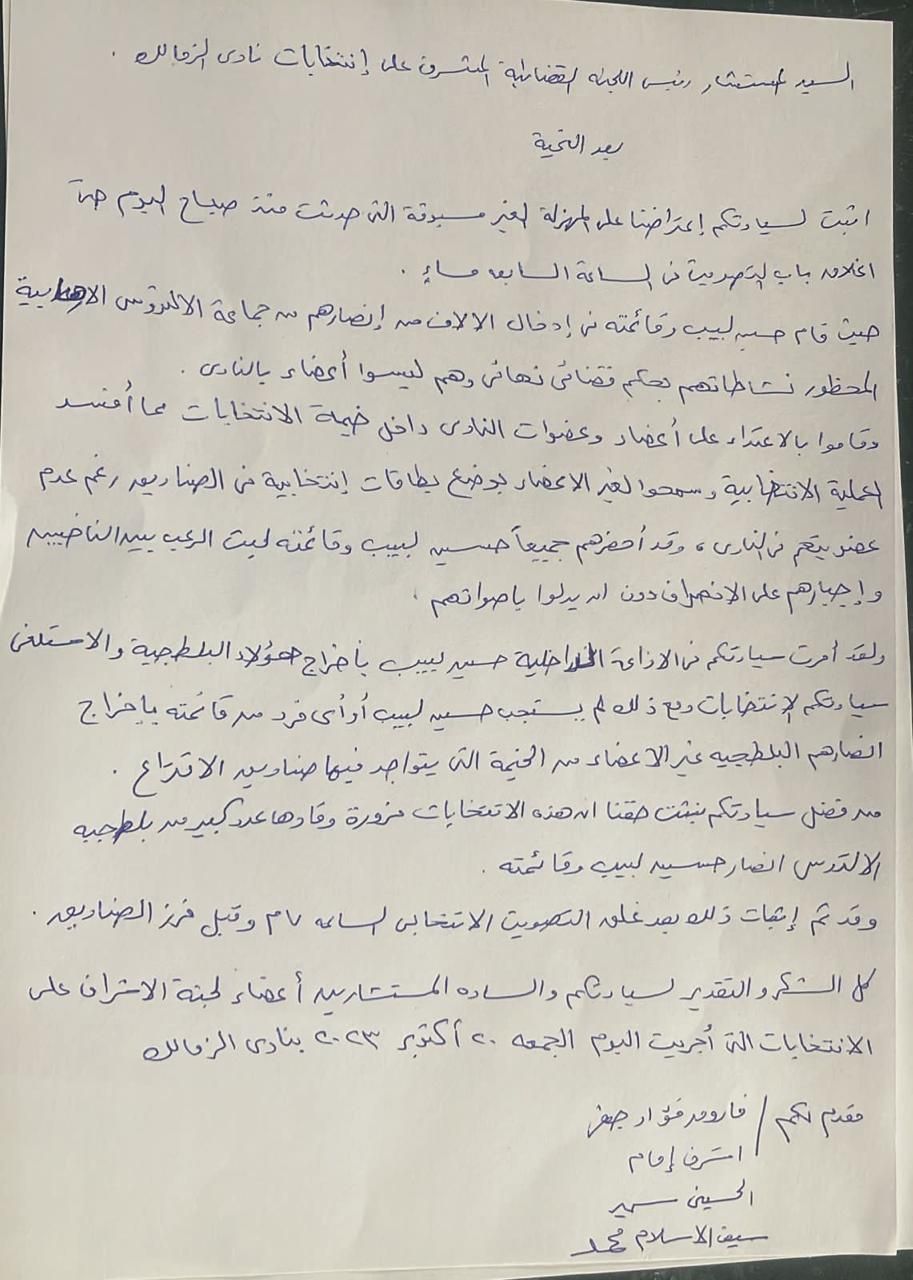 السيد المستشار رئيس اللجنه القضائية المشرف على إنتخابات نادى الزمالك .
بعد التحية
اثبت لسيادتكم إعتراضنا على المهزلة الغير مسبوقة التى حدثت منذ صباح اليوم حتى
اغلاق باب التصويت فى الساعة السابعه مساءٍ .
حيث قام حسين لبيب وقائمته فى إدخال الالاف من إنصارهم من جماعة الالتروس الارهابية
المحظور نشاطاتهم بحكم قضائى نهائى وهم ليسوا أعضاء بالنادى .
وقاموا بالاعتداء على أعضاء وعضوات النادى داخل خيمة الانتخابات مما أفسد
العملية الانتخابية وسمحوا لغير الاعضاء بوضع بطاقات إنتخابية فى الصناديق رغم عدم
عضويتهم فى النادى ، وقد أحضرهم جميعاً حسين لبيب وقائمته لبث الرعب بين الناخبين
وإجبارهم على الانصراف دون ان يدلوا باصواتهم .
ولقد أمرت سيادتكم فى الاذاعة الداخلية حسين لبيب بأخراج هؤلاء البلطجية والا ستلغى
سيادتكم الإنتخابات ومع ذلك لم يستجب حسين لبيب أو أى فرد من قائمته بإخراج
انصارهم البلطجيه غير الاعضاء من الخيمة التى يتواجد فيها صناديق الاقتراع .
من فضل سيادتكم نثبت حقنا ان هذه الانتخابات مزورة وقادها عدد كبير من بلطجيه
الالتروس انصار حسين لبيب وقائمته .
وقد تم إثبات ذلك بعد غلق التصويت الانتخابى لساعه ٧ م وقبل فرز الصناديق .
كل الشكر والتقدير لسيادتكم والساده المستشارين أعضاء لجنة الاشراف على
الانتخابات التى أجريت اليوم الجمعه ٢٠ أكتوبر ٢٠٢٣ بنادى الزمالك
مقدم لكم / فاروق فؤاد جعفر
اشرف إمام
الحسينى سمير
سيف الاسلام محمد